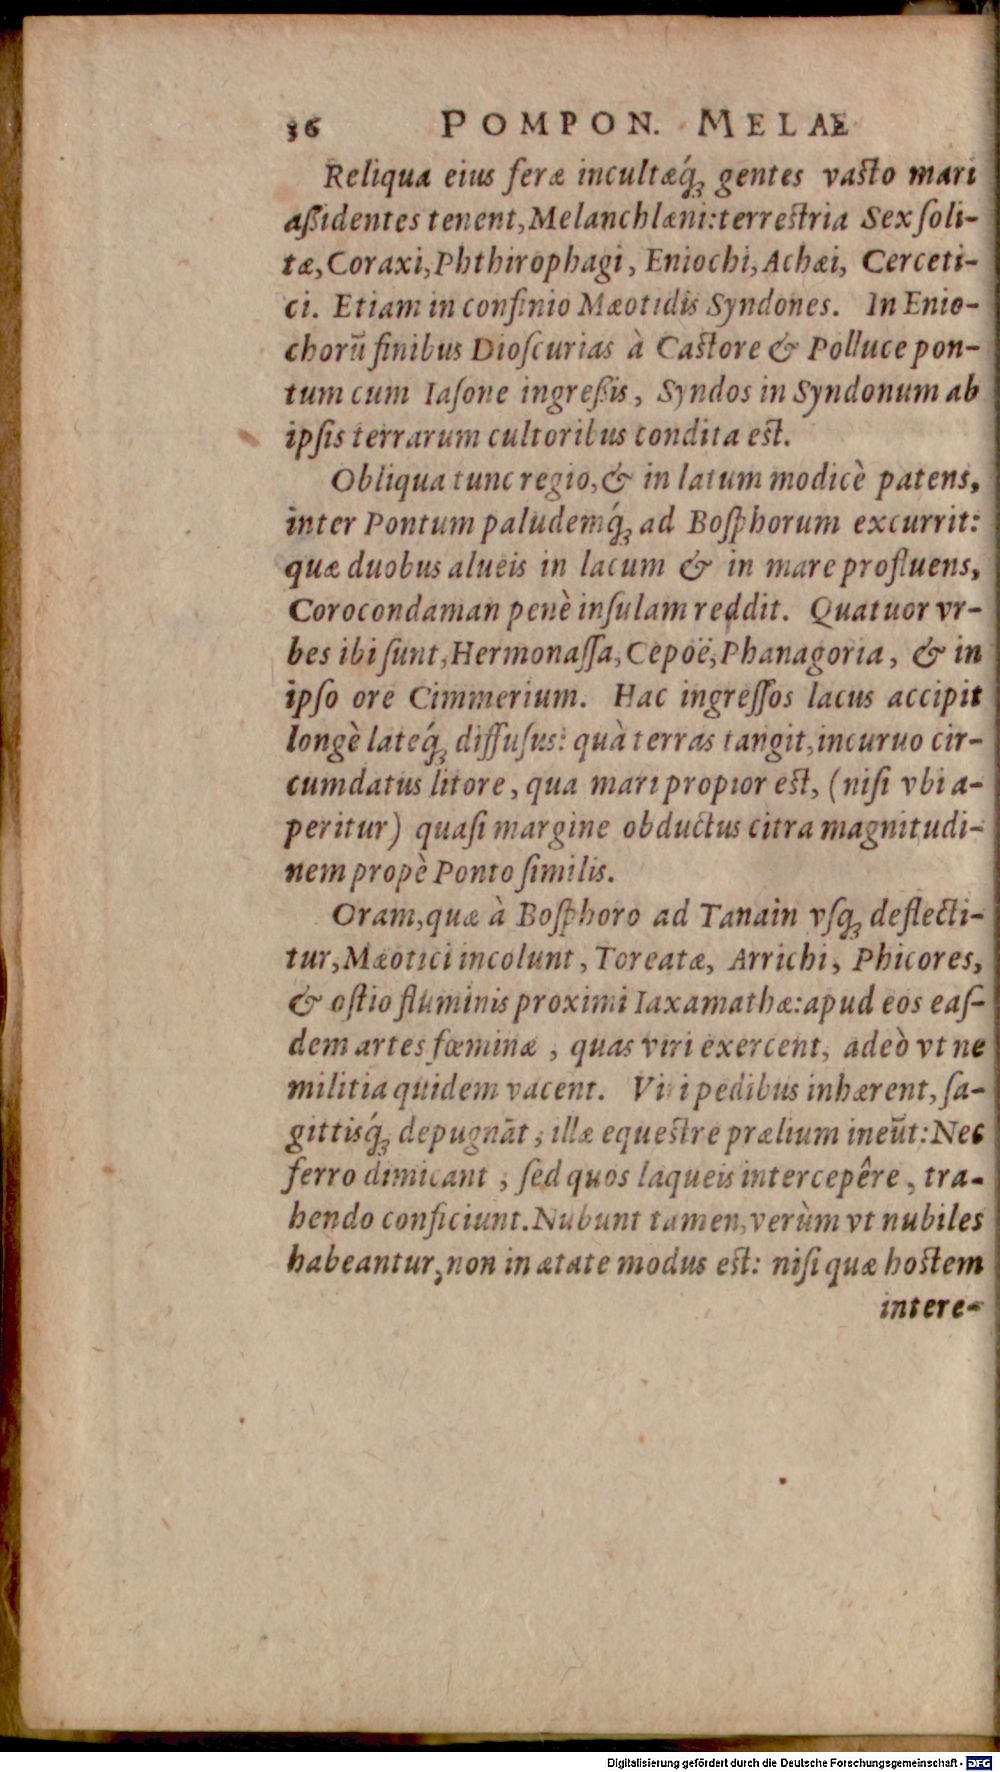 36 POMPON. MELAE
Reliqua eius feræ incultæq́ꝫ gentes vasto mari
aßidentes tenent, Melanchlæni: terrestria Sexſoli-
tæ, Coraxi, Phthirophagi, Eniochi, Achæi, Cerceti-
ci. Etiam in confinio Mæotidis Syndones. In Enio-
chorū finibus Dioſcurias à Castore & Polluce pon-
tum cum Iaſone ingreßis, Syndos in Syndonum ab
ipſis terrarum cultoribus condita est.
Obliqua tunc regio, & in latum modicè patens,
inter Pontum paludemq́ꝫ ad Boſphorum excurrit:
quæ duobus alueis in lacum & in mare profluens,
Corocondaman penè inſulam reddit. Quatuor vr-
bes ibi ſunt, Hermonaſſa, Cepoë, Phanagoria, & in
ipſo ore Cimmerium. Hac ingreſſos lacus accipit
longè lateq́ꝫ diffuſus: quà terras tangit, incuruo cir-
cumdatus litore, qua mari propior est, (niſi vbi a-
peritur) quaſi margine obductus citra magnitudi-
nem propè Ponto ſimilis.
Oram, quæ à Boſphoro ad Tanain vſqꝫ deflecti-
tur, Mæotici incolunt, Toreatæ, Arrichi, Phicores,
& oſtio fluminis proximi Iaxamathæ: apud eos eaſ-
dem artes fœminæ, quas viri exercent, adeò vt ne
militia quidem vacent. Viri pedibus inhærent, ſa-
gittisq́ꝫ depugnāt; illæ equestre prælium ineūt: Nec
ferro dimicant; ſed quos laqueis intercepêre, tra-
hendo conficiunt. Nubunt tamen, verùm vt nubiles
habeantur, non in ætate modus est: niſi quæ hostem
intere-
Digitalisierung gefördert durch die Deutsche Forschungsgemeinschaft - DFG